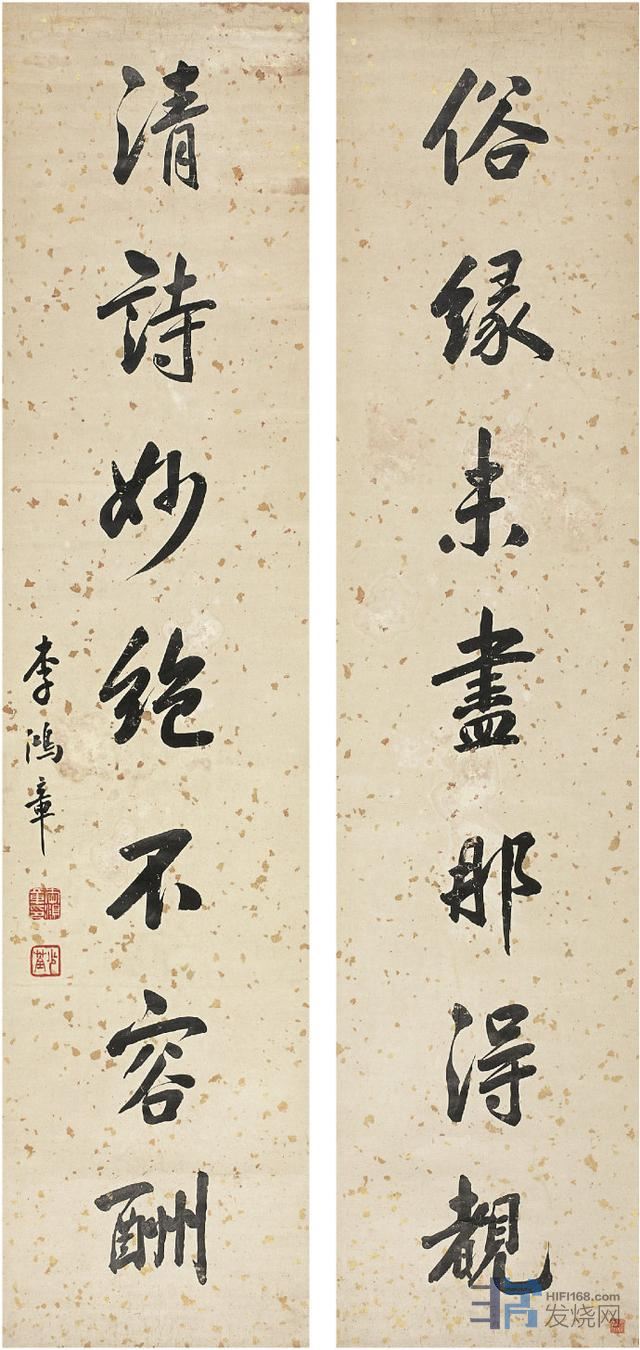 俗緣未盡那得覩
清詩妙絶不容酬
李鴻章
HIFI168.com
发烧网